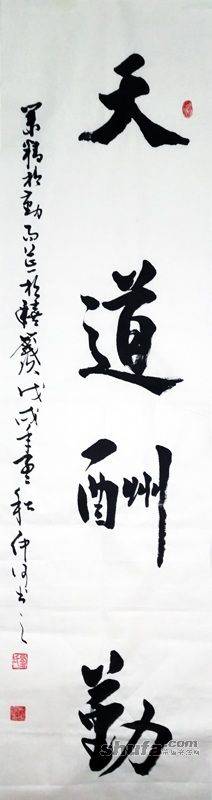 天道酬勤
業精於勤而荒於嬉 戊戌年 秋仲 书之
shufa.com